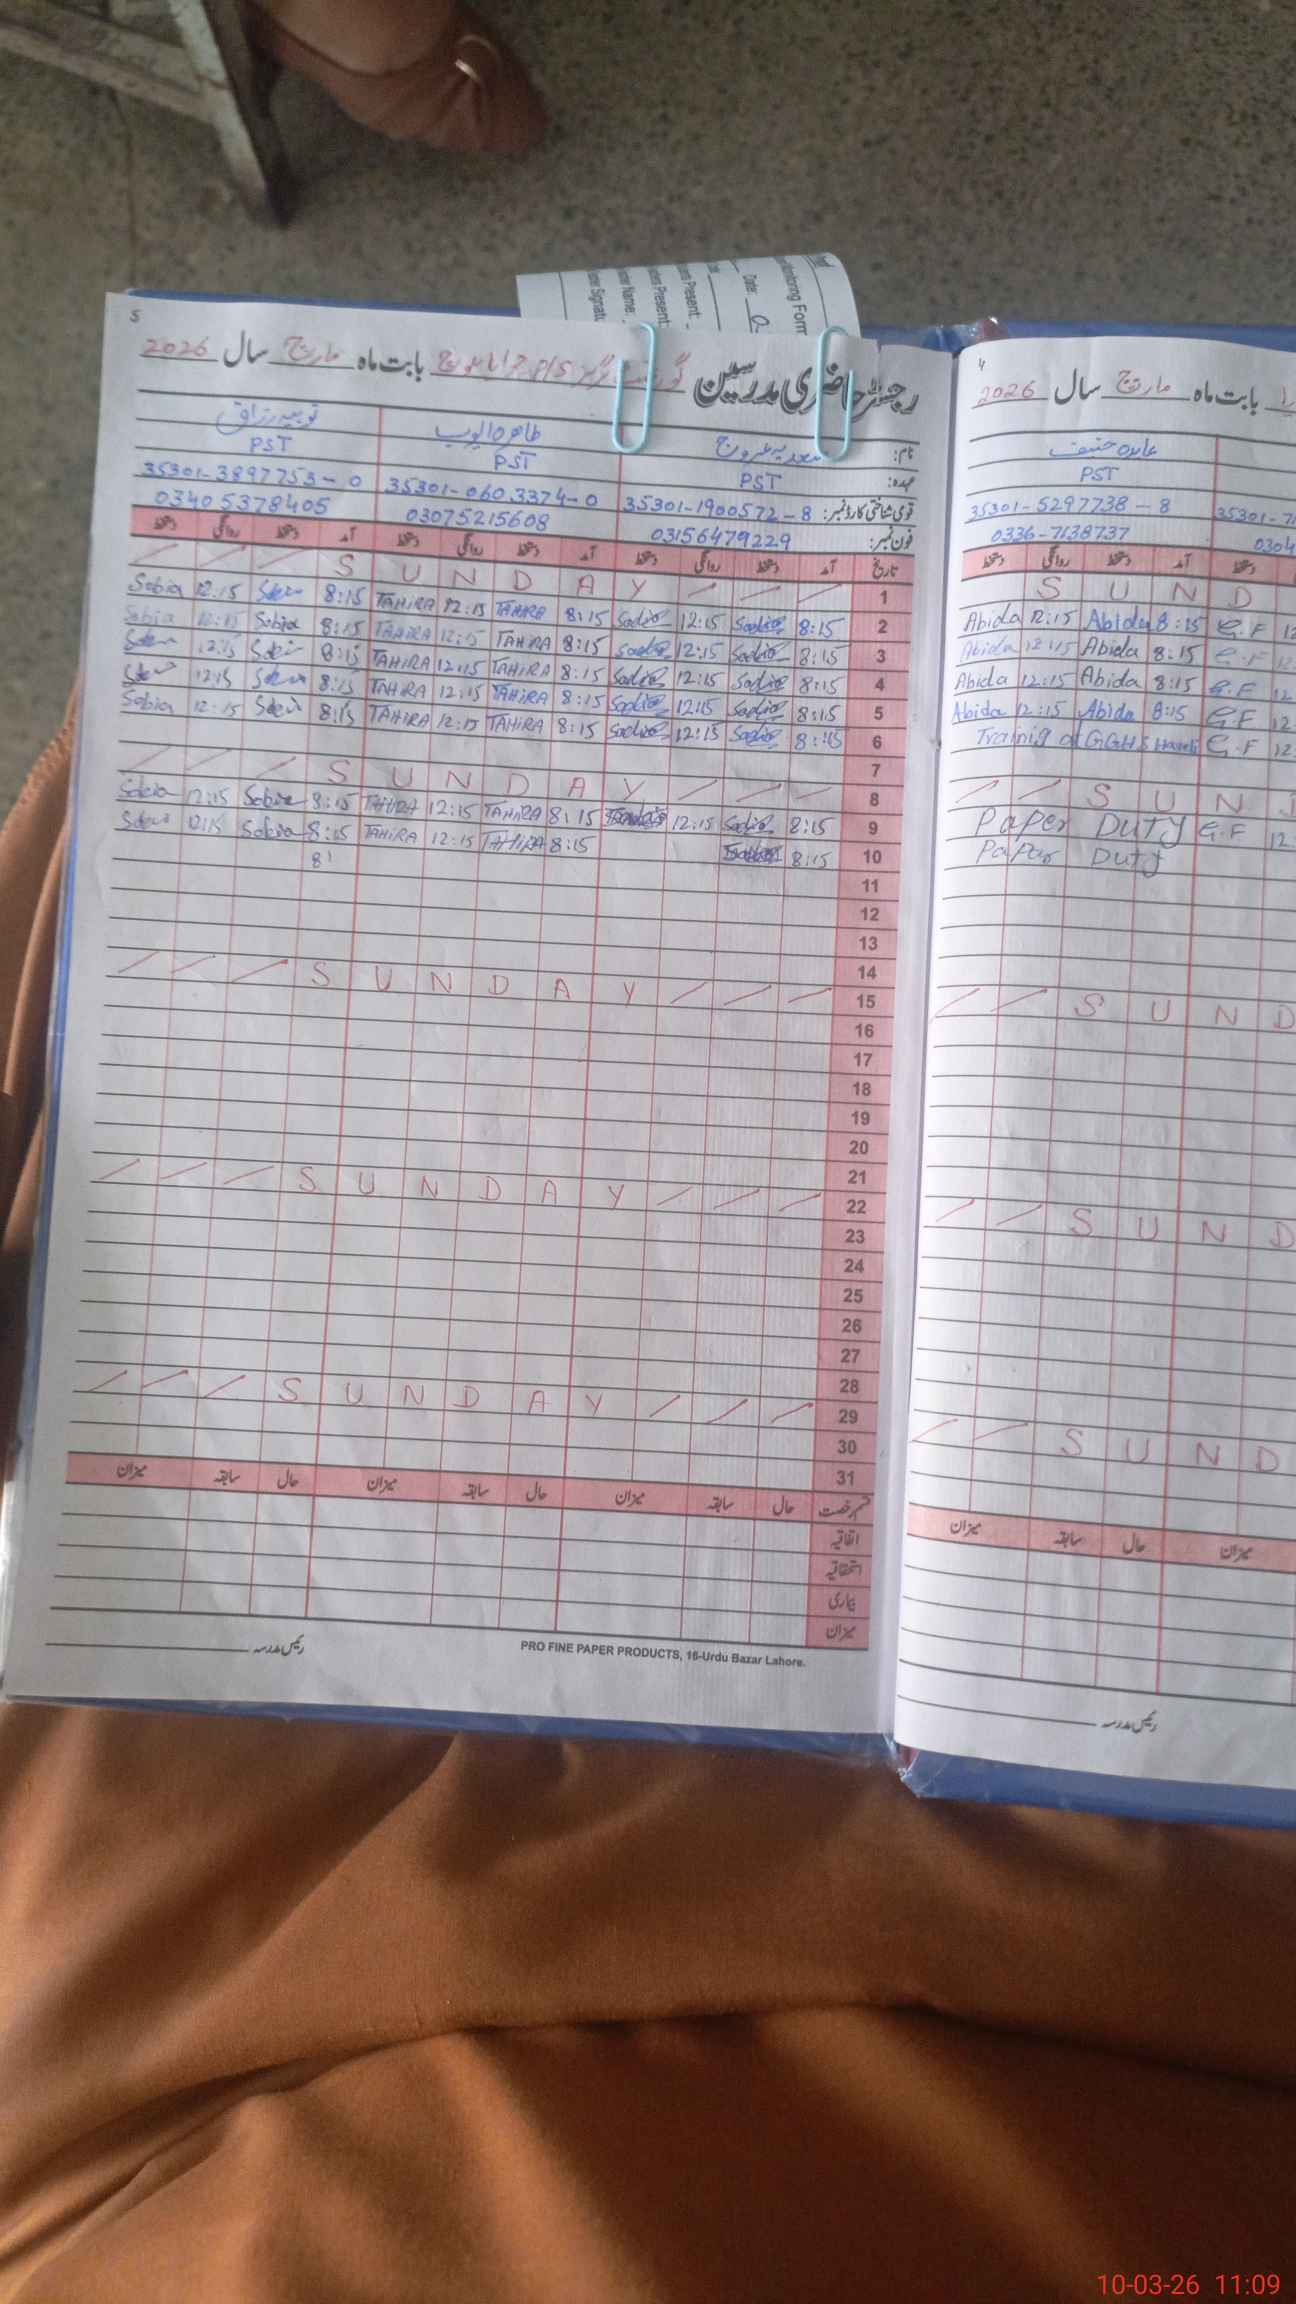 Monitoring Form
Date:
Present:
Name:
5
رجسٹر حاضری مدرسین بابت ماہ مارچ سال 2026
نام: سعدیہ عروج طاہرہ ایوب ثوبیہ رزاق
عہدہ: PST PST PST
قومی شناختی کارڈ نمبر: 35301-1900572-8 35301-0603374-0 35301-3897753-0
فون نمبر: 03156479229 03075215608 03405378405
تاریخ آمد دستخط روانگی دستخط آمد دستخط روانگی دستخط آمد دستخط روانگی دستخط
1 S U N D A Y
2 8:15 Sadia 12:15 Sadia 8:15 TAHIRA 12:15 TAHIRA 8:15 12:15 Sobia
3 8:15 Sadia 12:15 Sadia 8:15 TAHIRA 12:15 TAHIRA 8:15 Sobia 12:15 Sobia
4 8:15 Sadia 12:15 Sadia 8:15 TAHIRA 12:15 TAHIRA 8:15 12:15
5 8:15 Sadia 12:15 Sadia 8:15 TAHIRA 12:15 TAHIRA 8:15 12:15
6 8:15 Sadia 12:15 Sadia 8:15 TAHIRA 12:15 TAHIRA 8:15 12:15 Sobia
7
8 S U N D A Y
9 8:15 Sadia 12:15 8:15 TAHIRA 12:15 TAHIRA 8:15 Sobia 12:15 Sobia
10 8:15 8:15 TAHIRA 12:15 TAHIRA 8:15 Sobia 12:15
11 8'
12
13
14
15 S U N D A Y
16
17
18
19
20
21
22 S U N D A Y
23
24
25
26
27
28
29 S U N D A Y
30
31
قسم رخصت حال سابقہ میزان حال سابقہ میزان حال سابقہ میزان
اتفاقیہ
استحقاقیہ
بیماری
میزان
رئیس مدرسہ
PRO FINE PAPER PRODUCTS, 16-Urdu Bazar Lahore.
4
بابت ماہ مارچ سال 2026
عابدہ حنیف
PST
35301-5297738-8 35301-71
0336-7138737 0304
دستخط آمد دستخط روانگی دستخط
S U N D
Abida 12:15 Abida 8:15 G.F 12
Abida 12:15 Abida 8:15 G.F 12
Abida 12:15 Abida 8:15 G.F 12
Abida 12:15 Abida 8:15 G.F 12
Training at GGHS G.F 12
S U N D
Paper DUTY G.F 12:
Paper Duty
S U N D
S U N D
S U N D
میزان حال سابقہ میزان
رئیس مدرسہ
10-03-26 11:09